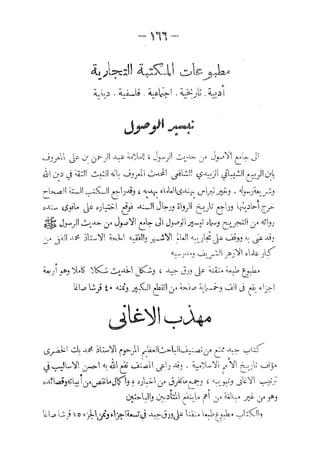 — ١٦٦ —
مطبوعات المكتبة التجارية
أدبية. تاريخية. اجتماعية. فلسفية. دينية
تيسير الوصول
الى جامع الاصول من حديث الرسول ، للعلامة عبد الرحمن بن على المعروف
بابن الربيع الشيبانى الزبيدى الشافعى المحدث المعروف بانه المثبت الثقة فى دين الله
وشريعة رسوله . وخير نبراس يهتدى العلماء بهديه ، وقد راجع الكتب الستة الصحاح
خرج أحاديثها وراجع تاريخ الرواة ورجال السند فوقع اختياره على ماقوى سنده
رواته من التجريح وسماه تيسير الوصول الى جامع الاصول من حديث الرسول ﷺ
وقد عنى به ووقف على تجاربه العالم الاشهر والفقيه الحجة الاستاذ محمد الفقى من
كبار علماء الازهر الشريف ومدرسيه
مطبوع طبعة متقنة على ورق جيد ، وشكل الحديث شكلا كاملا وهو أربعة
اجزاء يقع فى الف وخمسماية صفحة من القطع الكبير وثمنه ٤٠ قرشا صاغا
مهذب الاغانى
كتاب جيد ممتع من تصنيف الباحث العظيم المرحوم الاستاذ محمد بك الخضرى
مؤلف تاريخ الأمم الاسلامية . وقد راعى المصنف نفع الله به احسن الاساليب فى
ترتيب الاغانى وتبويبه ، وجمع ماتفرق من اخباره ، واكمال مانقص من أبياته وقصائده
وهو من غير مبالغة من أهم ماينفع المتأدبين والباحثين
والكتاب مطبوع طبعا متقنا على ورق جيد فى تسعة اجزاء وثمن الجزء ١٥ قرشا صاغا